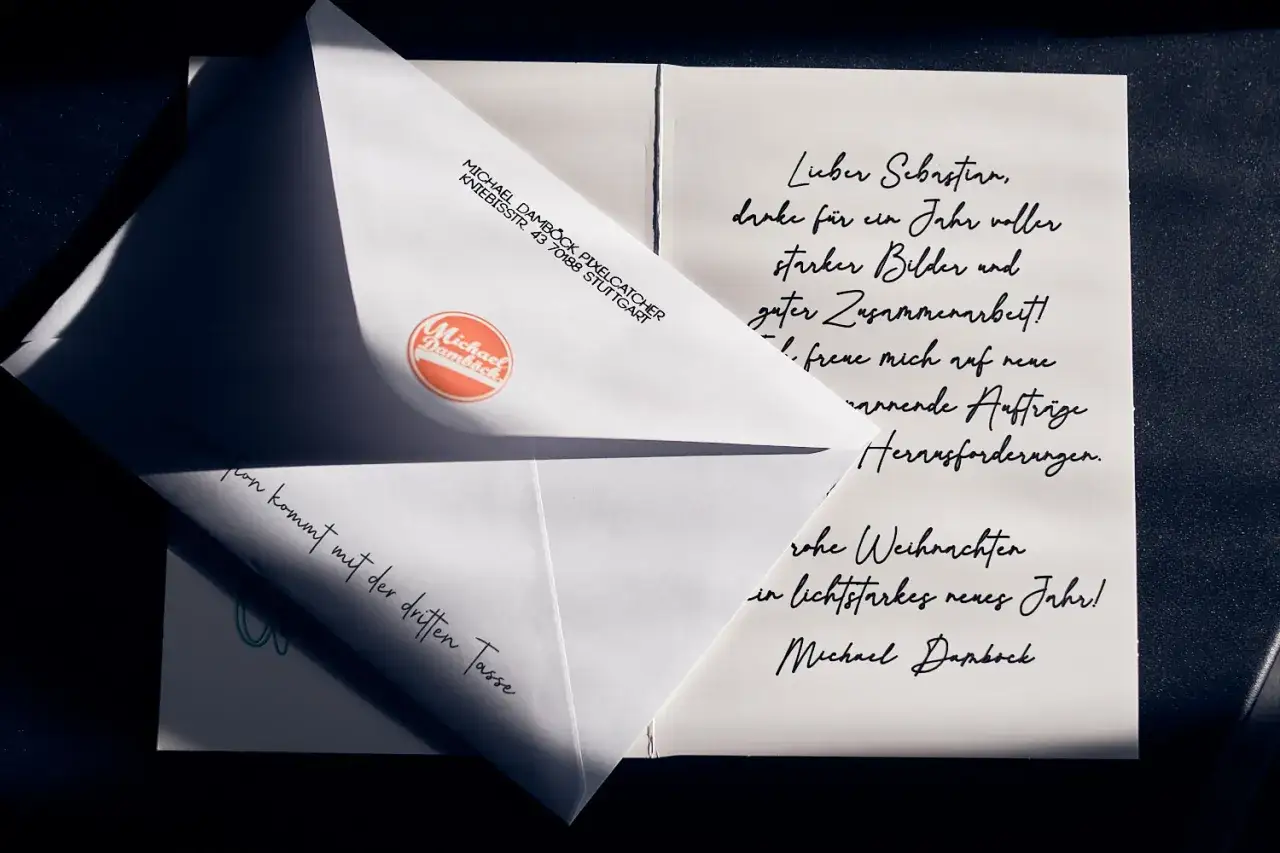 MICHAEL DAMBÖCK, PIXELCATCHER
KNIEBISSTR. 43 70188 STUTTGART
Michael
Damböck
kommt mit der dritten Tasse
Lieber Sebastian,
danke für ein Jahr voller
starker Bilder und
guter Zusammenarbeit!
freue mich auf neue
Aufträge
Herausforderungen.
Weihnachten
lichtstarkes neues Jahr!
Michael Dambock